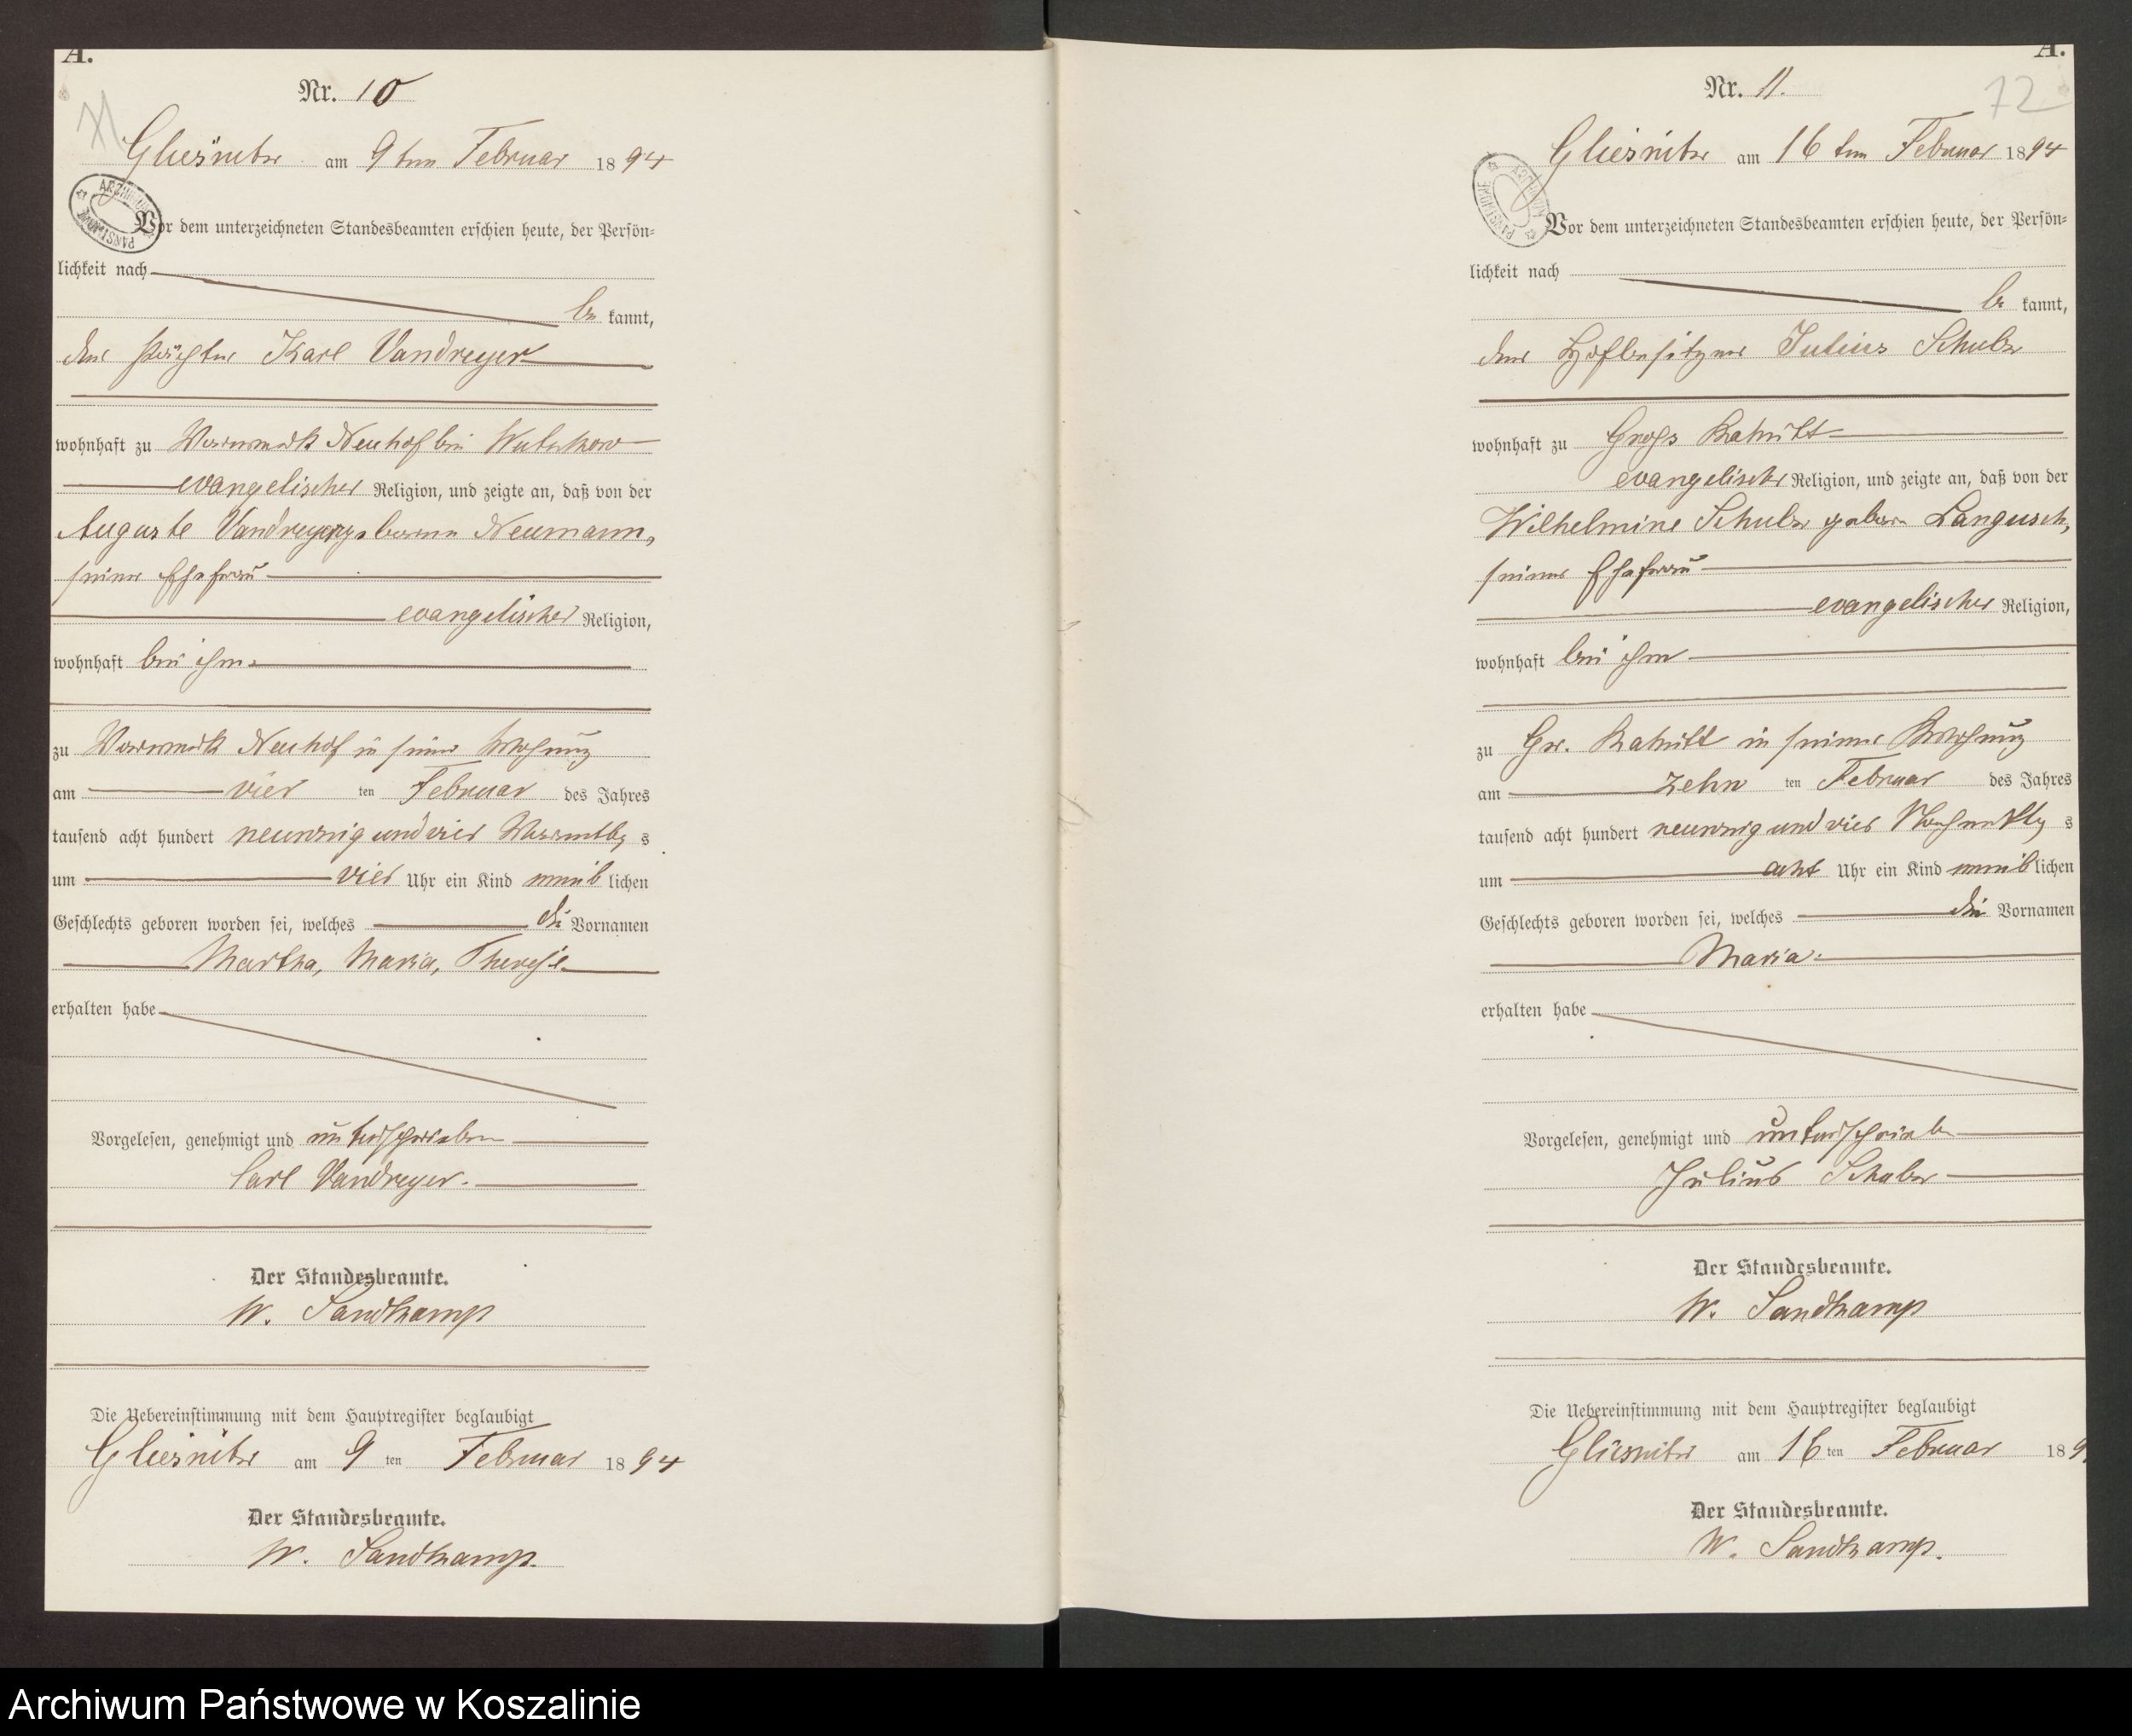 A.
Nr. 10
71
Gliesnitz am 9ten Februar 1894
ARCHIWUM PAŃSTWOWE
Vor dem unterzeichneten Standesbeamten erschien heute, der Persön=
lichkeit nach
be kannt,
der Pächter Karl Vandreyer
wohnhaft zu Neuhof bei
evangelischer Religion, und zeigte an, daß von der
Auguste Vandreyer geborene Neumann,
seiner Ehefrau
evangelischer Religion,
wohnhaft bei ihm
zu Neuhof in seiner Wohnung
am vier ten Februar des Jahres
tausend acht hundert neunzig und vier Vormittags
um vier Uhr ein Kind weiblichen
Geschlechts geboren worden sei, welches die Vornamen
Martha, Maria, Therese
erhalten habe
Vorgelesen, genehmigt und unterschrieben
Carl Vandreyer.
Der Standesbeamte.
W. Sandkamp
Die Uebereinstimmung mit dem Hauptregister beglaubigt
Gliesnitz am 9 ten Februar 1894
Der Standesbeamte.
W. Sandkamp.
A.
Nr. 11.
72
Gliesnitz am 16ten Februar 1894
ARCHIWUM PAŃSTWOWE
Vor dem unterzeichneten Standesbeamten erschien heute, der Persön=
lichkeit nach
be kannt,
der Hofbesitzer Julius Schulz
wohnhaft zu Groß
evangelischer Religion, und zeigte an, daß von der
Wilhelmine Schulz geborn Langusch,
seiner Ehefrau
evangelischer Religion,
wohnhaft bei ihm
zu Gr. in seiner Wohnung
am zehn ten Februar des Jahres
tausend acht hundert neunzig und vier Nachmittags
um acht Uhr ein Kind weiblichen
Geschlechts geboren worden sei, welches die Vornamen
Maria.
erhalten habe
Vorgelesen, genehmigt und unterschrieben
Julius Schulz
Der Standesbeamte.
W. Sandkamp
Die Uebereinstimmung mit dem Hauptregister beglaubigt
Gliesnitz am 16 ten Februar 189
Der Standesbeamte.
W. Sandkamp.
Archiwum Państwowe w Koszalinie